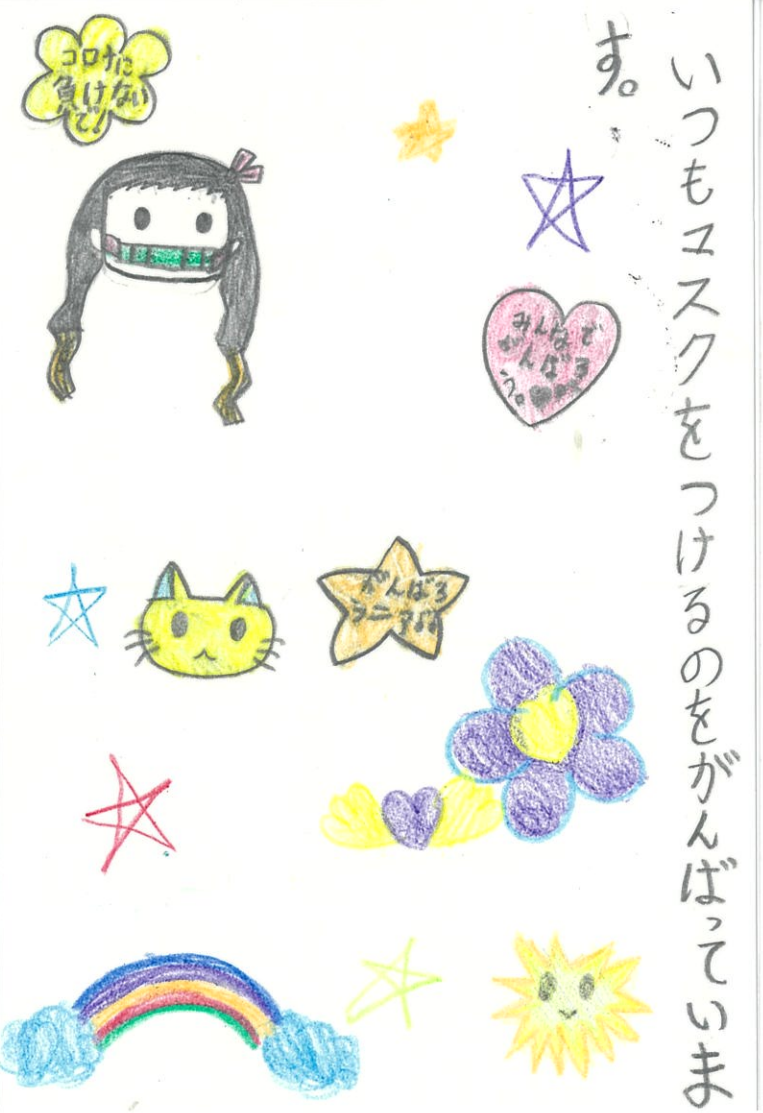 いつもマスクをつけるのをがんばっていま
す。
コロナに
負けない
で!
みんなで
がんばろ
う。
がんばろ